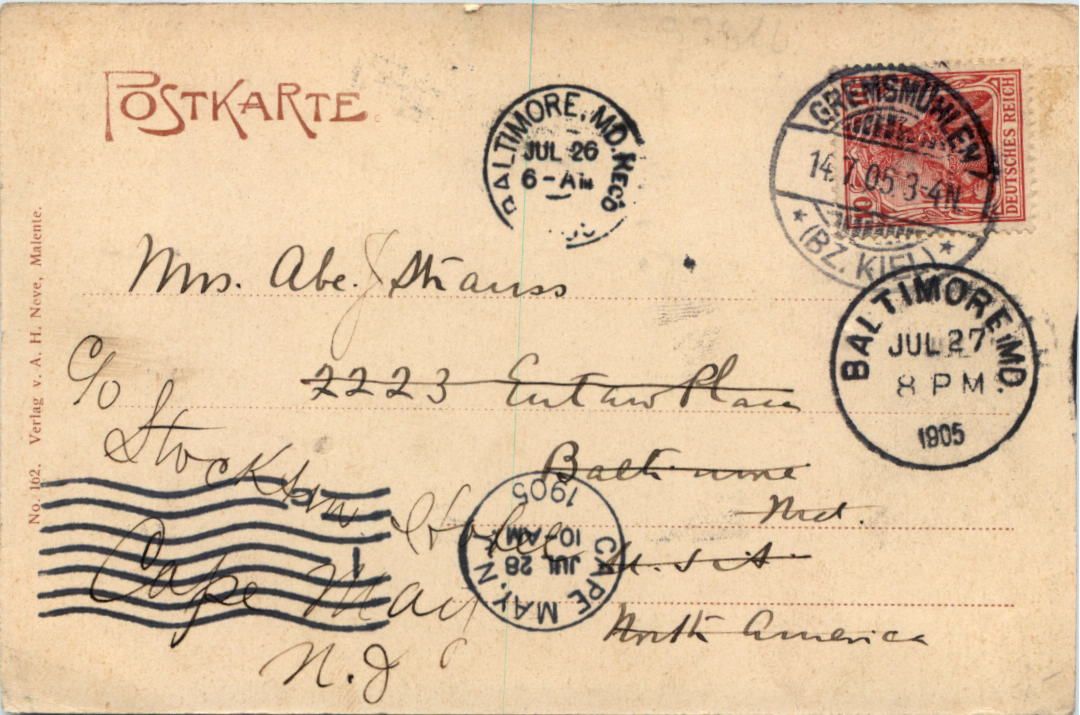 POSTKARTE
BALTIMORE, MD. REC'D
JUL 26
6-AM
GREMSMÜHLEN
14.7.05.3-4N.
* (BZ. KIEL) *
DEUTSCHES REICH
10
BALTIMORE, MD.
JUL 27
8 PM
1905
Mrs. Abe. J Strauss
2223 Eutaw Place
Baltimore
Md.
U.S.A
North America
c/o
Stockton Hotel
Cape May
N.J
CAPE MAY, N.J.
JUL 28
10 AM
1905
1
No. 162. Verlag v. A. H. Neve, Malente.